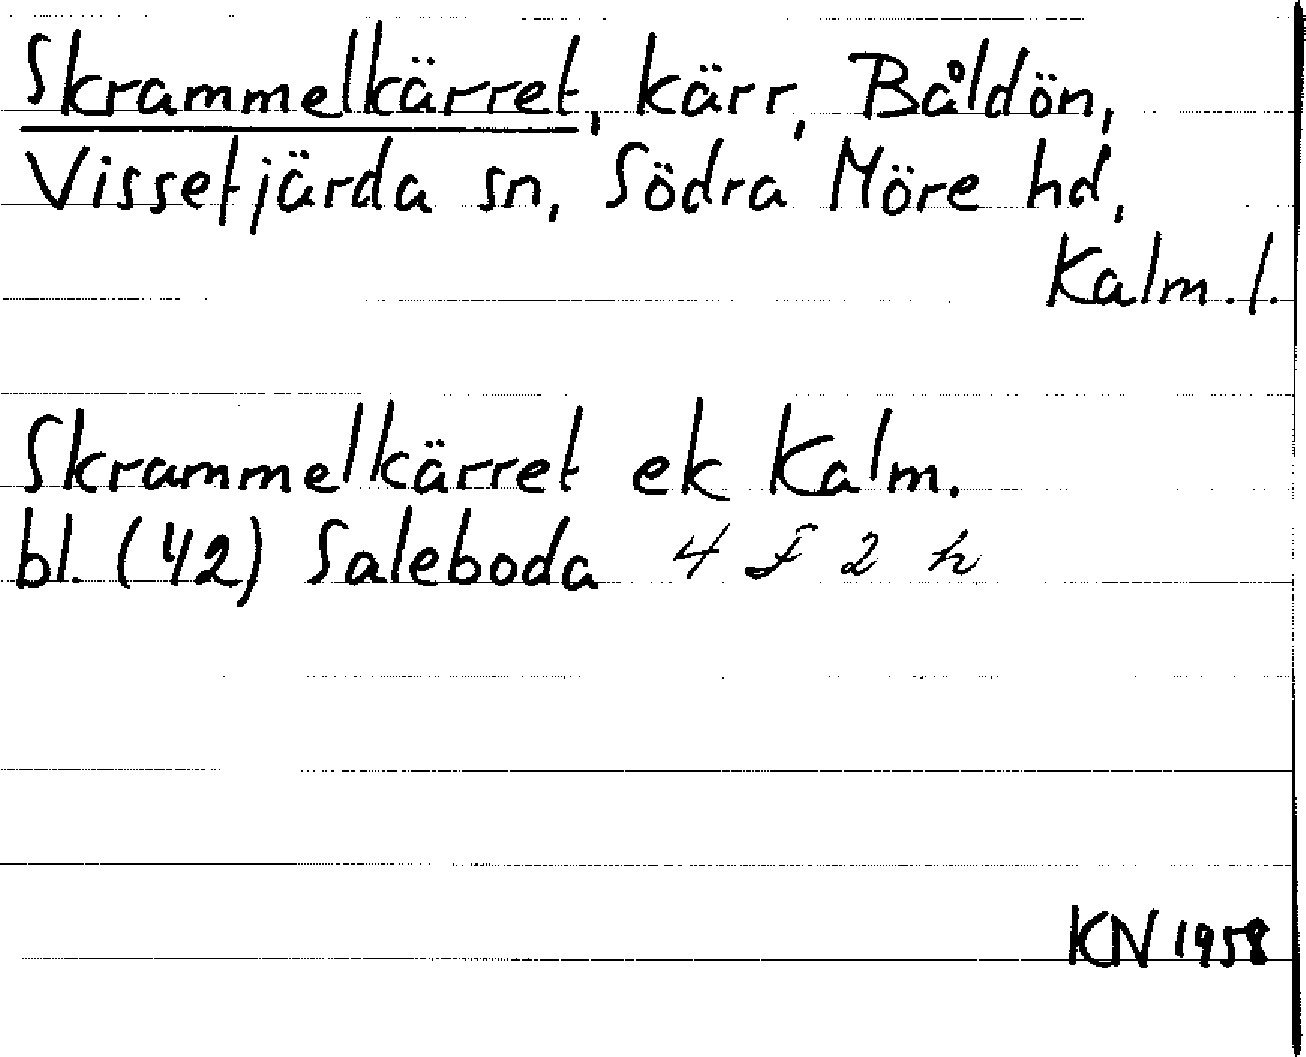 Skrammelkärret, kärr, Båldön,
Vissefjärda sn, Södra Möre hd,
Kalm. l.
Skrammelkärret ek Kalm.
bl. (42) Saleboda 4 F 2 h
KN 1958